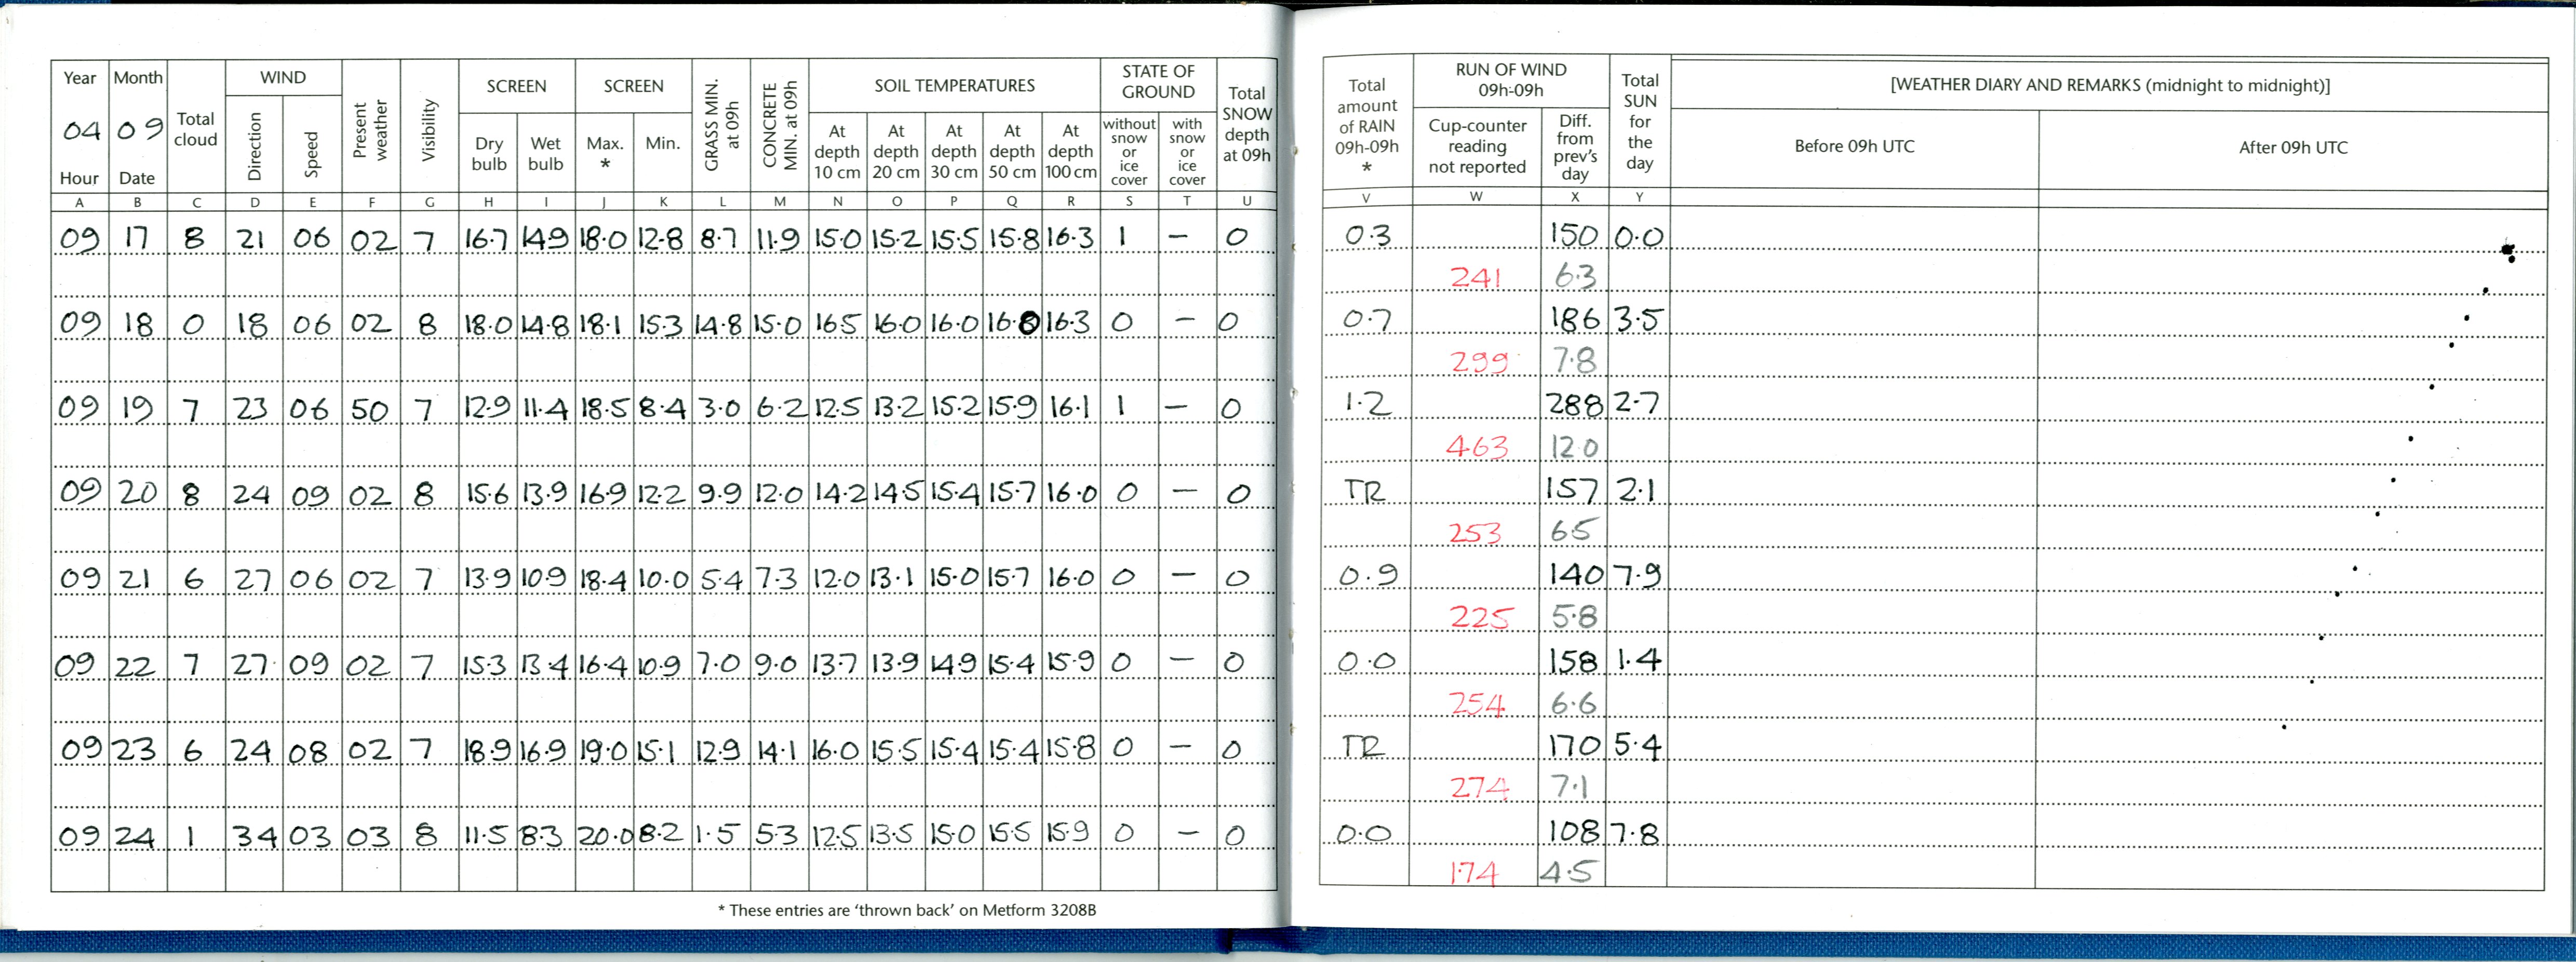 Year Month Total cloud WIND Present weather Visibility SCREEN SCREEN GRASS MIN. at 09h CONCRETE MIN. at 09h SOIL TEMPERATURES STATE OF GROUND Total SNOW depth at 09h Total amount of RAIN 09h-09h * RUN OF WIND 09h-09h Total SUN for the day [WEATHER DIARY AND REMARKS (midnight to midnight)]
04 09 Direction Speed Dry bulb Wet bulb Max. * Min. At depth 10 cm At depth 20 cm At depth 30 cm At depth 50 cm At depth 100 cm without snow or ice cover with snow or ice cover Cup-counter reading not reported Diff. from prev's day Before 09h UTC After 09h UTC
Hour Date
A B C D E F G H I J K L M N O P Q R S T U V W X Y
09 17 8 21 06 02 7 16.7 14.9 18.0 12.8 8.7 11.9 15.0 15.2 15.5 15.8 16.3 1 – 0 0.3 150 0.0
241 6.3
09 18 0 18 06 02 8 18.0 14.8 18.1 15.3 14.8 15.0 16.5 16.0 16.0 16.8 16.3 0 – 0 0.7 186 3.5
299 7.8
09 19 7 23 06 50 7 12.9 11.4 18.5 8.4 3.0 6.2 12.5 13.2 15.2 15.9 16.1 1 – 0 1.2 288 2.7
463 12.0
09 20 8 24 09 02 8 15.6 13.9 16.9 12.2 9.9 12.0 14.2 14.5 15.4 15.7 16.0 0 – 0 TR 157 2.1
253 6.5
09 21 6 27 06 02 7 13.9 10.9 18.4 10.0 5.4 7.3 12.0 13.1 15.0 15.7 16.0 0 – 0 0.9 140 7.9
225 5.8
09 22 7 27 09 02 7 15.3 13.4 16.4 10.9 7.0 9.0 13.7 13.9 14.9 15.4 15.9 0 – 0 0.0 158 1.4
254 6.6
09 23 6 24 08 02 7 18.9 16.9 19.0 15.1 12.9 14.1 16.0 15.5 15.4 15.4 15.8 0 – 0 TR 170 5.4
274 7.1
09 24 1 34 03 03 8 11.5 8.3 20.0 8.2 1.5 5.3 12.5 13.5 15.0 15.5 15.9 0 – 0 0.0 108 7.8
174 4.5
* These entries are 'thrown back' on Metform 3208B